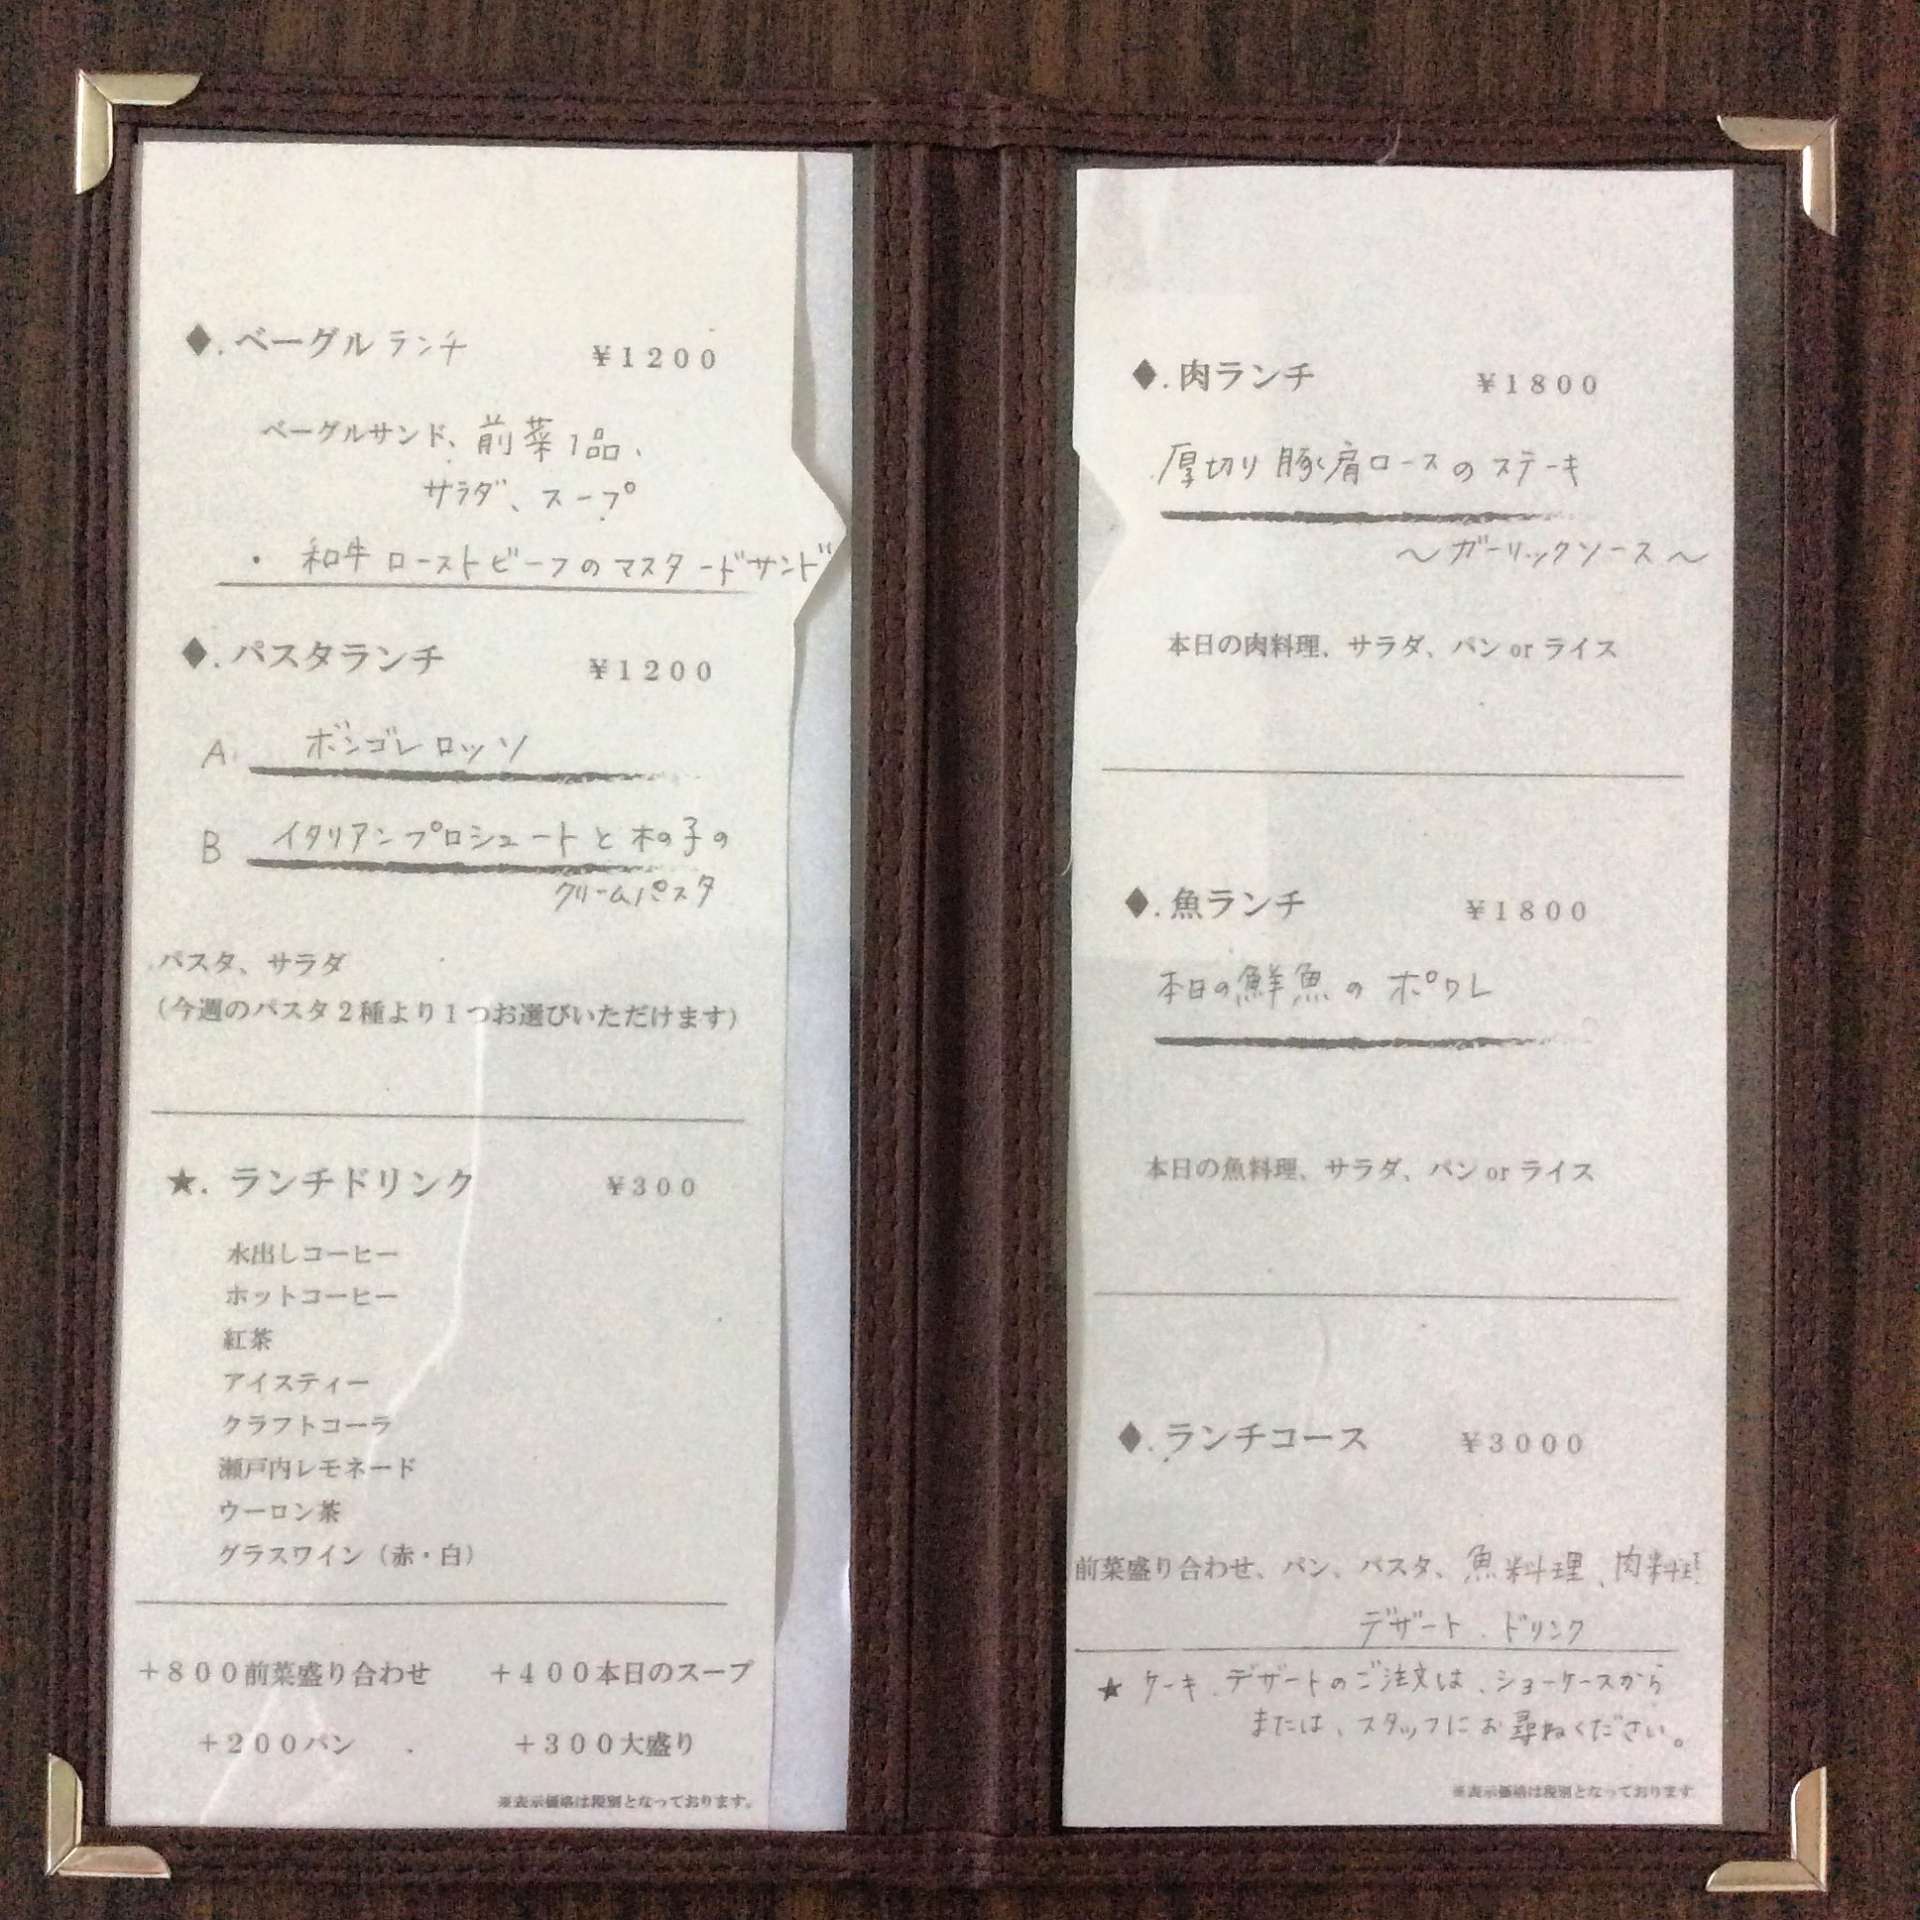 ◆.ベーグルランチ ¥1200
ベーグルサンド、前菜1品、
サラダ、スープ
・和牛ローストビーフのマスタードサンド
◆.パスタランチ ¥1200
A ボンゴレロッソ
B イタリアンプロシュートと木の子の
クリームパスタ
パスタ、サラダ
(今週のパスタ2種より1つお選びいただけます)
★.ランチドリンク ¥300
水出しコーヒー
ホットコーヒー
紅茶
アイスティー
クラフトコーラ
瀬戸内レモネード
ウーロン茶
グラスワイン(赤・白)
+800前菜盛り合わせ +400本日のスープ
+200パン +300大盛り
※表示価格は税別となっております。
◆.肉ランチ ¥1800
厚切り豚肩ロースのステーキ
～ガーリックソース～
本日の肉料理、サラダ、パンorライス
◆.魚ランチ ¥1800
本日の鮮魚のポワレ
本日の魚料理、サラダ、パンorライス
◆.ランチコース ¥3000
前菜盛り合わせ、パン、パスタ、魚料理、肉料理
デザート、ドリンク
★ケーキ、デザートのご注文は、ショーケースから
または、スタッフにお尋ねください。
※表示価格は税別となっております